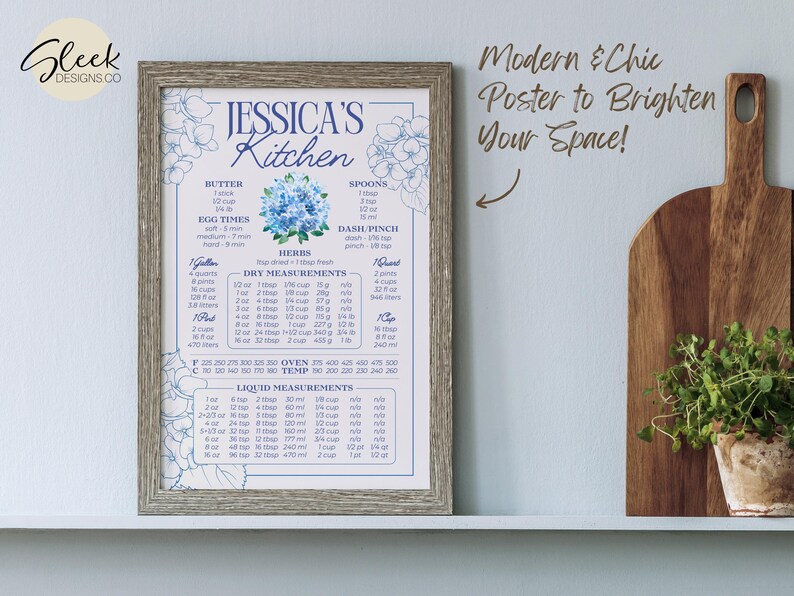 Sleek
DESIGNS.CO
Modern & Chic
Poster to Brighten
Your Space!
JESSICA'S
Kitchen
BUTTER
1 stick
1/2 cup
1/4 lb
EGG TIMES
soft - 5 min
medium - 7 min
hard - 9 min
SPOONS
1 tbsp
3 tsp
1/2 oz
15 ml
DASH/PINCH
dash - 1/16 tsp
pinch - 1/8 tsp
HERBS
1tsp dried = 1 tbsp fresh
1 Gallon
4 quarts
8 pints
16 cups
128 fl oz
3.8 litters
1 Pint
2 cups
16 fl oz
470 liters
1 Quart
2 pints
4 cups
32 fl oz
946 liters
1 Cup
16 tbsp
8 fl oz
240 ml
DRY MEASUREMENTS
1/2 oz 1 tbsp 1/16 cup 15 g n/a
1 oz 2 tbsp 1/8 cup 28g n/a
2 oz 4 tbsp 1/4 cup 57 g n/a
3 oz 6 tbsp 1/3 cup 85 g n/a
4 oz 8 tbsp 1/2 cup 115 g 1/4 lb
8 oz 16 tbsp 1 cup 227 g 1/2 lb
12 oz 24 tbsp 1+1/2 cup 340 g 3/4 lb
16 oz 32 tbsp 2 cup 455 g 1 lb
F 225 250 275 300 325 350 OVEN 375 400 425 450 475 500
C 110 120 140 150 170 180 TEMP 190 200 220 230 240 260
LIQUID MEASUREMENTS
1 oz 6 tsp 2 tbsp 30 ml 1/8 cup n/a n/a
2 oz 12 tsp 4 tbsp 60 ml 1/4 cup n/a n/a
2+2/3 oz 16 tsp 5 tbsp 80 ml 1/3 cup n/a n/a
4 oz 24 tsp 8 tbsp 120 ml 1/2 cup n/a n/a
5+1/3 oz 32 tsp 11 tbsp 160 ml 2/3 cup n/a n/a
6 oz 36 tsp 12 tbsp 177 ml 3/4 cup n/a n/a
8 oz 48 tsp 16 tbsp 240 ml 1 cup 1/2 pt 1/4 qt
16 oz 96 tsp 32 tbsp 470 ml 2 cup 1 pt 1/2 qt